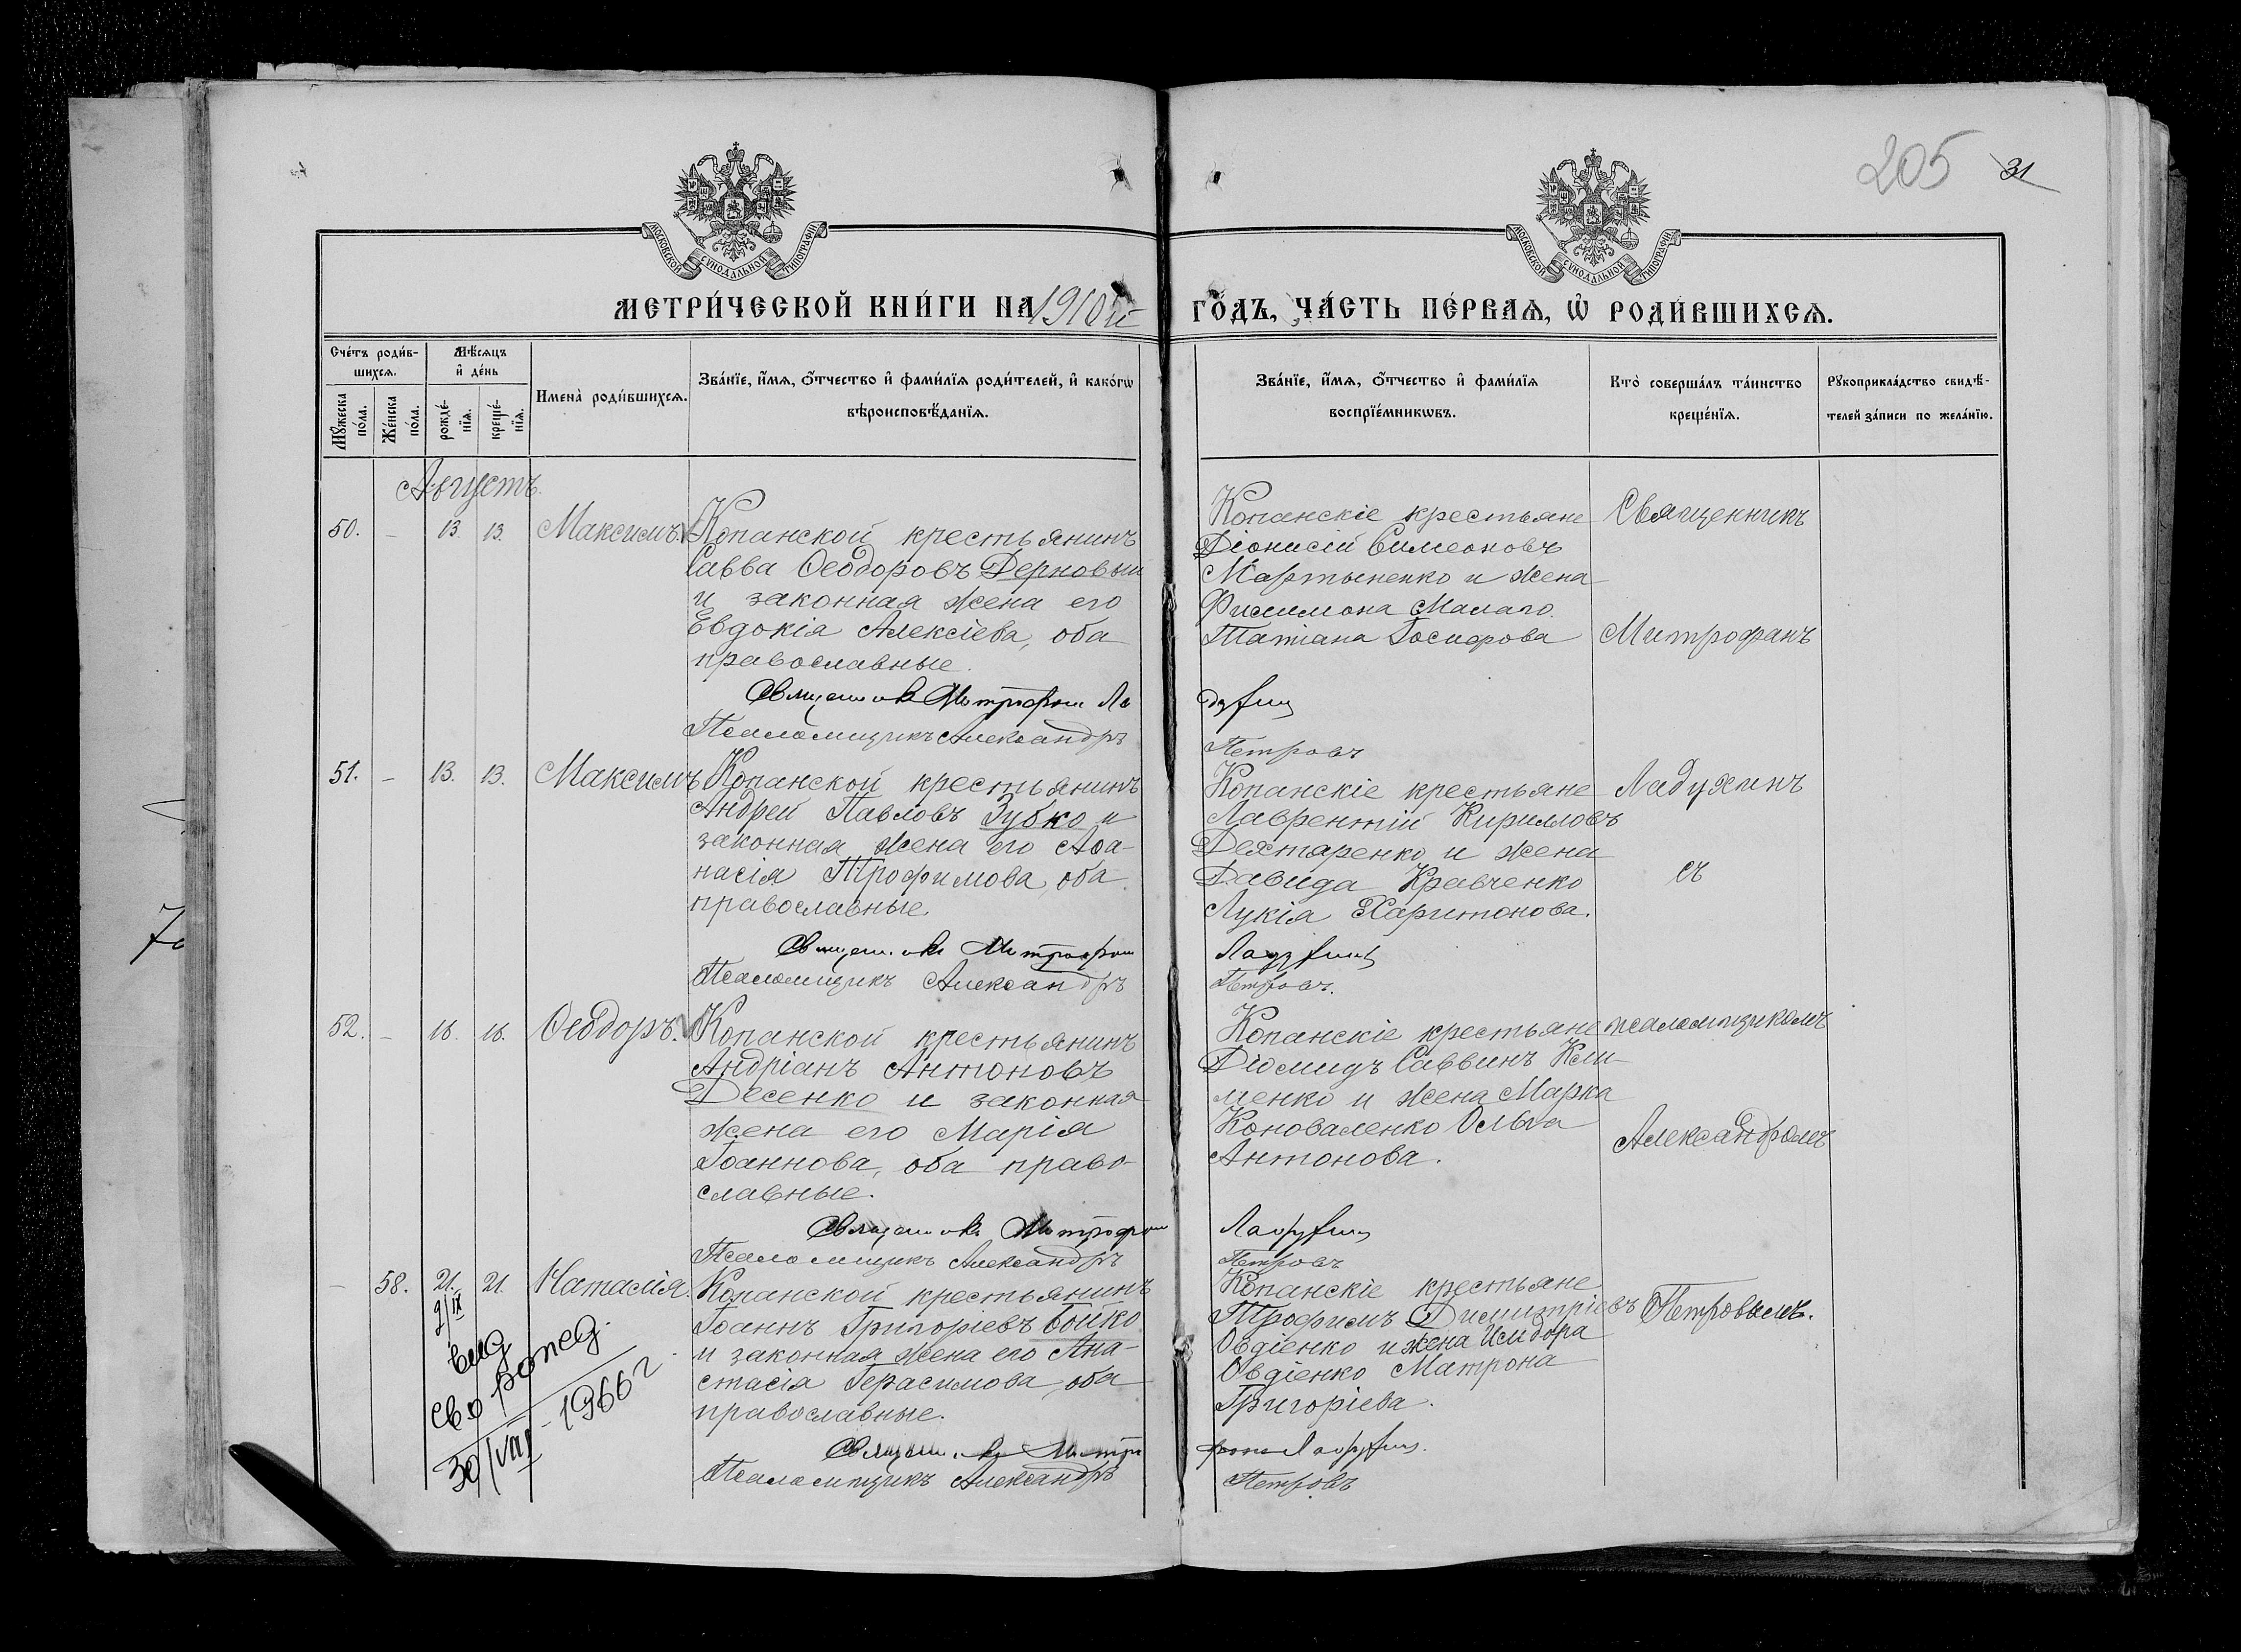 205 31
МОСКОВСКОЙ СУНОДАЛЬНОЙ ТИПОГРАФІИ
МОСКОВСКОЙ СУНОДАЛЬНОЙ ТИПОГРАФІИ
МЕТРИ́ЧЕСКОЙ КНИ́ГИ НА 1910й ГО́ДЪ, ЧА́СТЬ ПЕ́РВАѦ, Ѡ҆ РОДИ́ВШИХСѦ.
Счетъ роди́в-
шихсѧ.
Мꙋжеска по́ла.
Же́нска по́ла.
Мѣ́сѧцъ
и҆ де́нь
рожде́-
нїѧ.
креще́-
нїѧ.
Имена̀ роди́вшихсѧ.
Зва́нїе, и҆́мѧ, ѻ҆́тчество и҆ фами́лїѧ роди́телей, и҆ како́гѡ
вѣроисповѣ́данїѧ.
Зва́нїе, и҆́мѧ, ѻ҆́тчество и҆ фами́лїѧ
воспрїе́мникѡвъ.
Кто̀ соверша́лъ та́инство
креще́нїѧ.
Рꙋкоприкла́дство свидѣ́-
телей за́писи по жела́нїю.
Августъ.
50. - 13. 13. Максимъ.
Копанской крестьянинъ
Савва Ѳеодоровъ Дерновый
и законная жена его
Евдокія Алексіева, оба
православные.
Священникъ Митрофанъ Ла
Псаломщикъ Александръ
Копанскіе крестьяне
Діонисій Симеоновъ
Мартыненко и жена
Филимона Малаго
Татіана Іосифова
духинъ
Петровъ
Священникъ
Митрофанъ
51. - 13. 13. Максимъ
Копанской крестьянинъ
Андрей Павловъ Зубко и
законная жена его Аѳа-
насія Трофимова, оба
православные.
Священникъ Митрофанъ
Псаломщикъ Александръ
Копанскіе крестьяне
Лаврентій Кирилловъ
Дехтяренко и жена
Давида Кравченко
Лукія Харитонова.
Ладухинъ
Петровъ.
Ладухинъ
съ
52. - 16. 16. Ѳеодоръ.
Копанской крестьянинъ
Андріанъ Антоновъ
Десенко и законная
жена его Марія
Іоаннова, оба право-
славные.
Священникъ Митрофанъ
Псаломщикъ Александръ
Копанскіе крестьяне
Діомидъ Саввинъ Кли-
менко и жена Марка
Коноваленко Ольга
Антонова.
Ладухинъ
Петровъ
псаломщикомъ
Александромъ
- 58. 21. 21. Наталія.
Копанской крестьянинъ
Іоаннъ Григоріевъ Бойко
и законная жена его Ана-
стасія Герасимова, оба
православные.
Священникъ Митро
Псаломщикъ Александръ
Копанскіе крестьяне
Трофимъ Димитріевъ
Овдіенко и жена Исидора
Овдіенко Матрона
Григоріева.
фанъ Ладухинъ.
Петровъ
Петровымъ.
вид
30/VIII - 1966 г